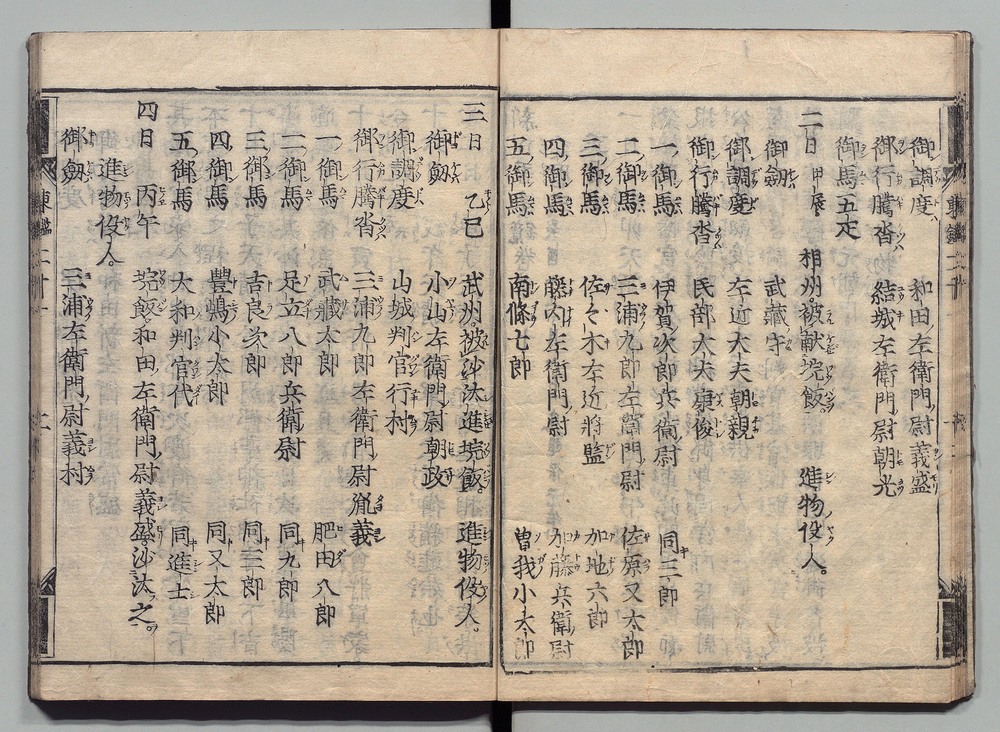 御調度 和田左衛門尉義盛
御行騰沓 結城左衛門尉朝光
御馬五疋
二日 甲辰 相州被献埦飯。進物役人。
御剱 武藏守
御調度 左近大夫朝親
御行騰沓 民部大夫康俊
一御馬 伊賀次郎兵衛尉 同三郎
二御馬 三浦九郎左衛門尉 佐原又太郎
三御馬 佐々木左近將監 加地六郎
四御馬 藤内左衛門尉 加藤兵衛尉
五御馬 南條七郎 曽我小太郎
三日 乙巳 武州被沙汰進埦飯。進物役人。
御剱 小山左衛門尉朝政
御調度 山城判官行村
御行騰沓 三浦九郎左衛門尉胤義
一御馬 武藏太郎 肥田八郎
二御馬 足立八郎兵衛尉 同九郎
三御馬 古良次郎 同三郎
四御馬 豐嶋小太郎 同又太郎
五御馬 大和判官代 同進士
四日 丙午 埦飯和田左衛門尉義盛沙汰之。
進物役人。
御剱 三浦左衛門尉義村